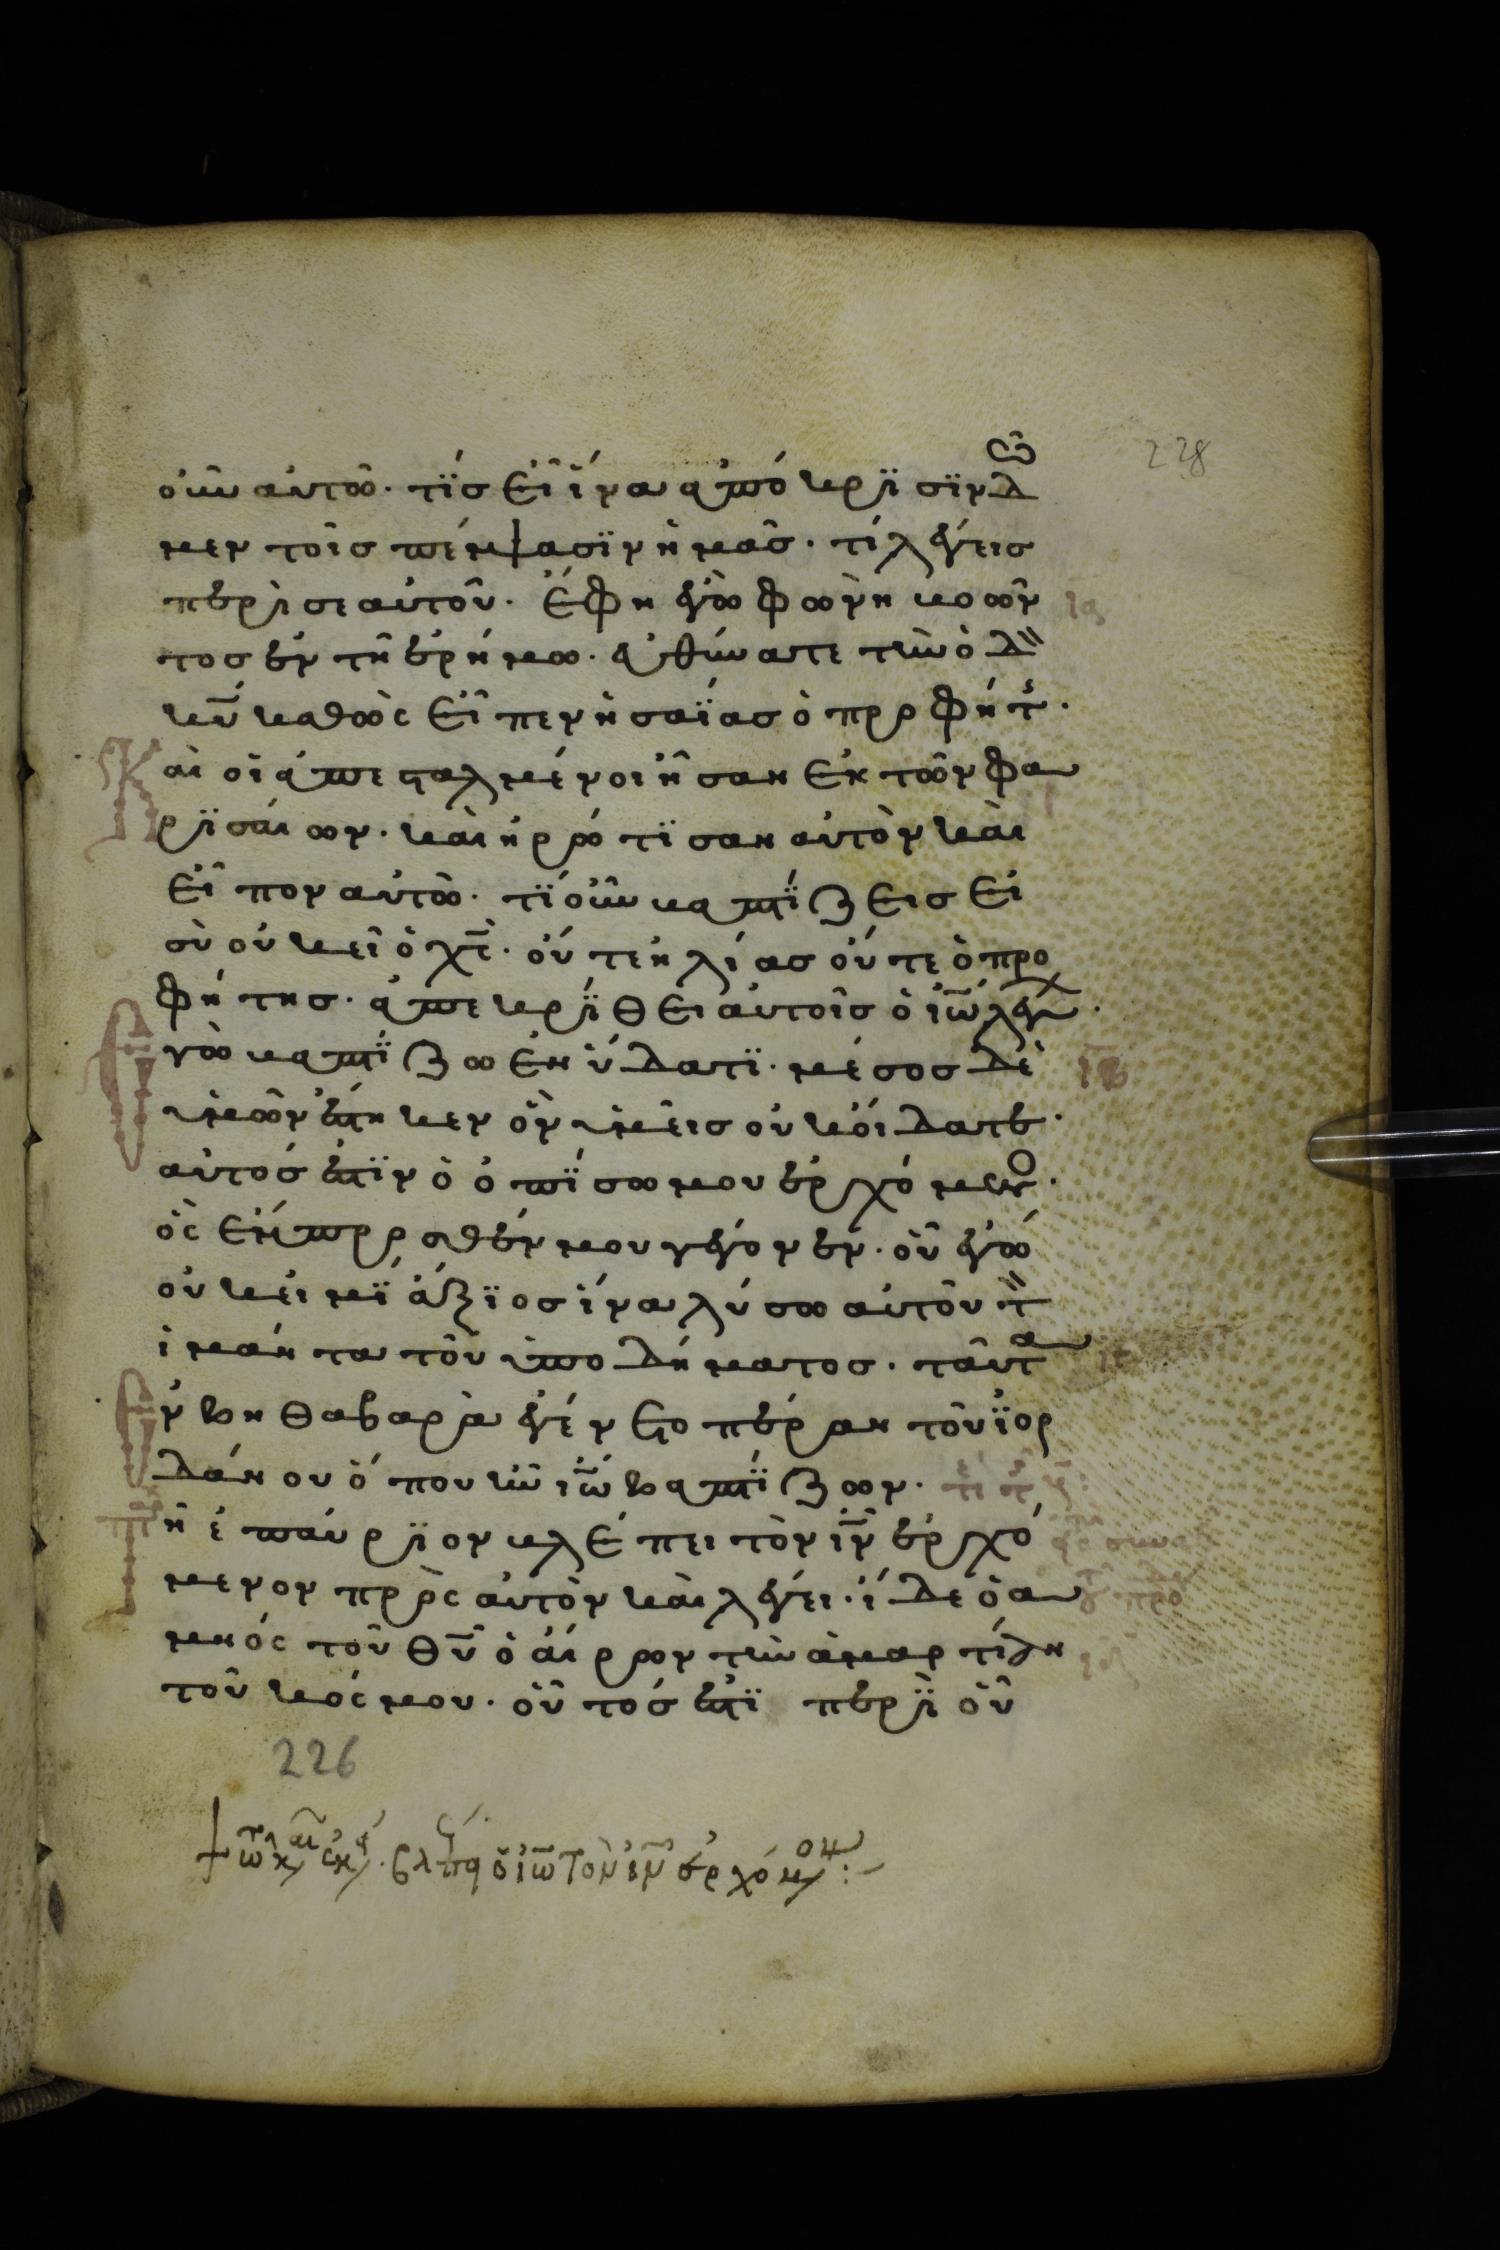 228
οὖν αὐτῶ· τίς εἶ ἵνα ἀπόκρισιν δῶ
μεν τοῖς πέμψασιν ἡμᾶς· τί λέγεις
περὶ σεαυτοῦ· ἔφη ἐγὼ φωνὴ βοῶν
τος ἐν τῆ ἐρήμω· εὐθύνατε τὴν ὁδ
κυ καθὼς εἶπεν ἡσαΐας ὁ προφήτ·
Καὶ οἱ ἀπεσταλμένοι ἦσαν ἐκ τῶν φα
ρισαίων· καὶ ἠρώτισαν αὐτὸν καὶ
εἶπον αὐτῶ· τί οὖν βαπτίζεις εἰ
σὺ οὐκ εἶ ὁ χς· οὔτε ἠλίας οὔτε ὁ προ
φήτης· ἀπεκρίθει αὐτοῖς ὁ ιω λέγων·
Εγὼ βαπτίζω ἐν ὕδατι· μέσος δὲ ιβ
ὑμῶν ἕστηκεν ὃν ὑμεῖς οὐκ οἴδατε·
αὐτός ἐστιν ὁ ὀπίσω μου ἐρχόμενο·
ὃς ἔμπροσθέν μου γέγονεν· οὗ ἐγὼ
οὐκ εἰμὶ ἄξιος ἵνα λύσω αὐτοῦ τ
ἱμάντα τοῦ ὑποδήματος· ταῦτα
Εν βηθαβαρὰ ἐγένετο πέραν τοῦ ἰορ
δάνου ὅπου ἦν ιω βαπτίζων·
Τῆ ἐπαύριον βλέπει τὸν ιν ἐρχό
μενον πρὸς αὐτὸν καὶ λέγει· ἴδε ὁ ἀ
μνός του θυ ὁ αἴρρων τὴν ἁμαρτίαν
τοῦ κόσμου· οὗτός ἐστι περὶ οὗ
226
τω κ αι εκ· βλέπει ὁ ιω τὸν ιν ἐρχόμενον:-